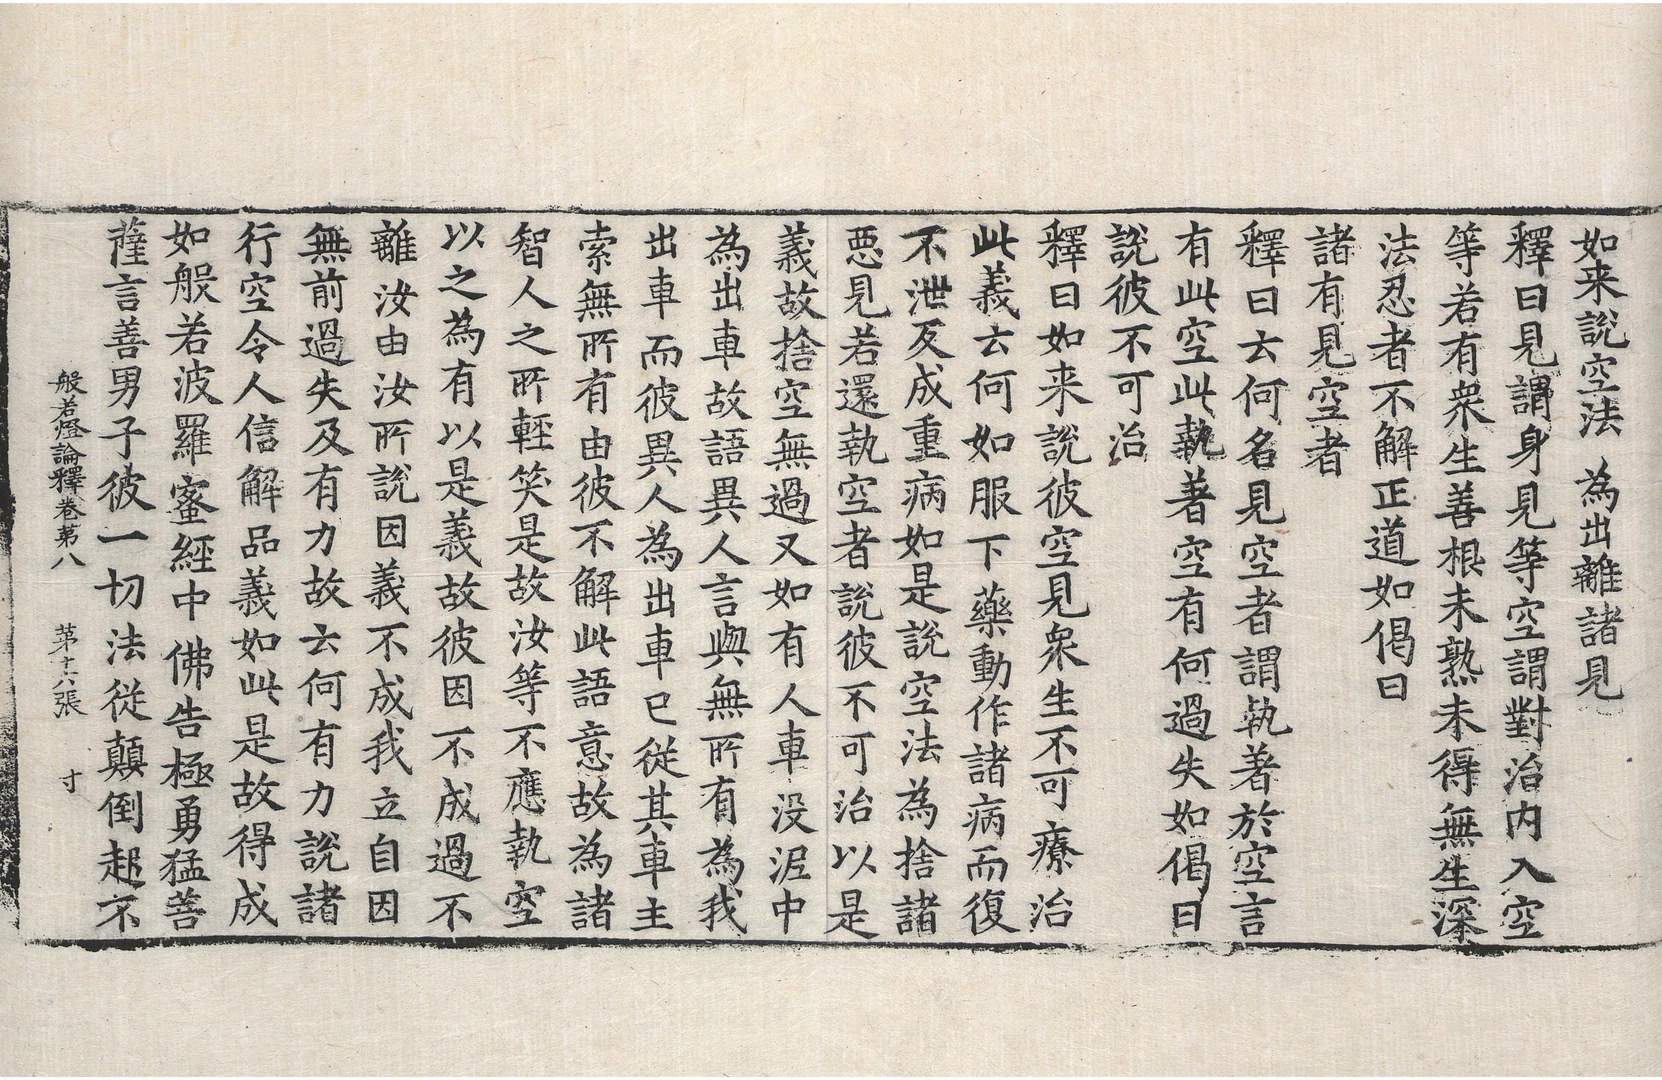 如来說空法　為出離諸見
釋曰見謂身見等空謂對治内入空
等若有衆生善根未熟未得無生深
法忍者不解正道如偈曰
諸有見空者
釋曰云何名見空者謂執著於空言
有此空此執著空有何過失如偈曰
說彼不可治
釋曰如来說彼空見衆生不可療治
此義云何如服下藥動作諸病而復
不泄反成重病如是說空法為捨諸
惡見若還執空者說彼不可治以是
義故捨空無過又如有人車没泥中
為出車故語異人言與無所有為我
出車而彼異人為出車已從其車主
索無所有由彼不解此語意故為諸
智人之所輕笑是故汝等不應執空
以之為有以是義故彼因不成過不
離汝由汝所說因義不成我立自因
無前過失及有力故云何有力說諸
行空令人信解品義如此是故得成
如般若波羅蜜經中佛告極勇猛菩
薩言善男子彼一切法從顛倒起不
般若燈論釋卷第八　第十六張　寸